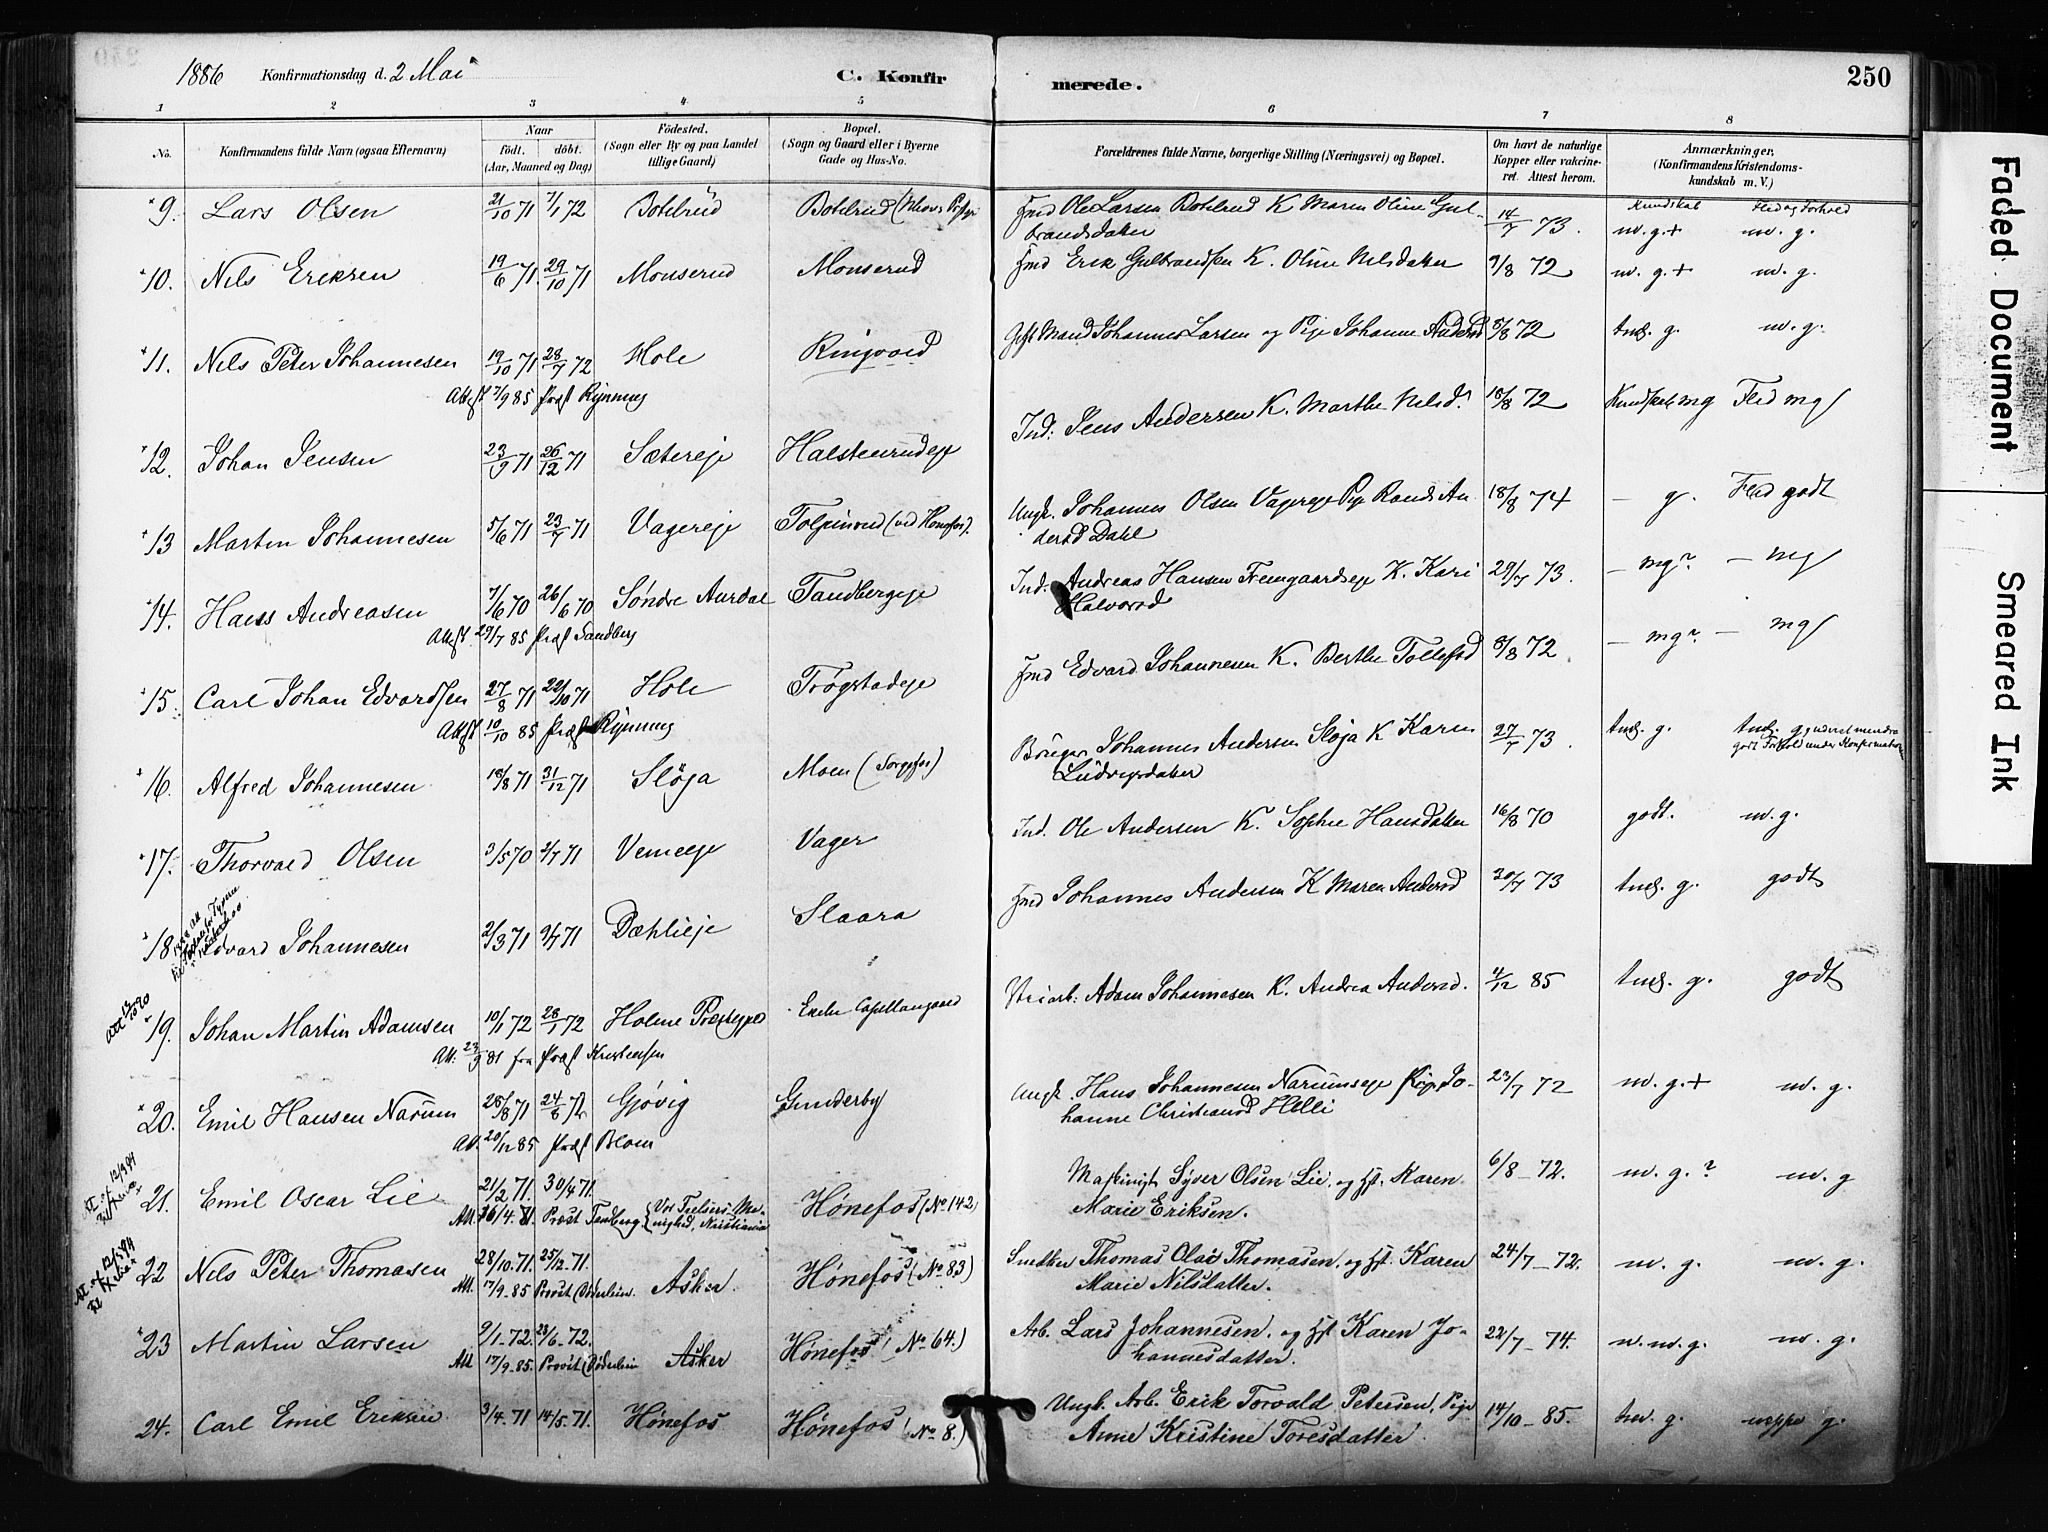 1886 Konfirmationsdag d. 2 Mai C. Konfir merede. 250
1 2 3 4 5 6 7 8
No. Konfirmandens fulde Navn (ogsaa Efternavn) Naar født. døbt. (Aar, Maaned og Dag) Födested. (Sogn eller By og paa Landet tillige Gaard) Bopæl. (Sogn og Gaard eller i Byerne Gade og Hus-No. Forældrenes fulde Navne, borgerlige Stilling (Næringsvei) og Bopæl. Om havt de naturlige Kopper eller vakcineret. Attest herom. Anmærkninger. (Konfirmandens Kristendomskundskab m. V.)
Kundskab Flid og Forhold
9. Lars Olsen 21/10 71 7/1 72 Botilrud Botilrud Ole Larsen Botilrud K Maren Oline Gulbrandsdatter 14/7 73. m. g. + m. g.
10. Nils Eriksen 19/6 71. 29/10 71 Monserud Monserud Erik Gulbrandsen K. Oline Nilsdatter 9/8 72 m. g. + m. g.
11. Nils Peter Johannesen 19/10 71 28/7 72 Hole Ringvold Gift Mand Johannes Larsen og Pige Johanne Andersd 8/8 72 tmlg. g. m. g.
Attest 7/9 85 Præst Rynning
12. Johan Jensen 23/9 71 26/12 71 Sætereje Halstenrudeje Ind: Jens Andersen K. Marthe Nilsd. 18/8 72 Kundskab mg Flid mg
13 Martin Johannesen 5/6 71 23/7 71 Vagereje Tolpinrud (ved Hønefos). Ungk. Johannes Olsen Vagereje Pige Randi Andersd Dahl 18/8 74 – g. Flid godt
14. Hans Andreasen 7/6 70 26/6 70 Søndre Aurdal Tandbergeje Ind. Andreas Hansen K. Kari Halvorsd 29/7 73. – mg? – mg
Attest. 29/7 85 Præst Sandberg
15. Carl Johan Edvardsen 27/8 71 22/10 71 Hole Trøgstadeje Edvard Johannesen K. Berthe Tollefsd 8/8 72 – mg? – mg
Attest 10/10 85 Præst Rynning
16. Alfred Johannesen 18/8 71 31/12 71 Sløja Moen Bruger Johannes Andersen Sløja K Karen Ludvigsdatter 27/7 73. tmlg. g. tmlg. g under Konfirmation
17. Thorvald Olsen 3/5 70 2/7 71 Vemeeje Vager Ind. Ole Andersen K. Sophie Hansdatter 16/8 70 godt. m. g.
18 Edvard Johannesen 2/3 71 9/7 71 Dæhlieje Slaara Johannes Andersen K Maren Andersd 30/7 73 tmlg. g. godt
19. Johan Martin Adamsen 10/1 72 28/1 72 Holme Præstegjeld Capellangaard Adam Johannesen K. Andrea Andersd. 4/12 85 tmlg. g. godt
Att. 23/9 81 fra Præst Kristensen
20. Emil Hansen Narum 28/8 71 24/6 72 Gjøvig Gunderby Ungk. Hans Johannesen Narumseje Pige Johanne Christiansd Helli 23/7 72 m. g. + m. g.
Att. 20/12 85 Præst Blom
21. Emil Oscar Lie 21/2 71. 30/4 71. Hønefos (No 142) Maskinist Syver Olsen Lie, og Hst. Karen Marie Eriksen. 6/8 – 72. m. g. ? m. g
22 Nils Peter Thomasen 28/10. 71. 25/12. 71. Asker. Hønefos (No 83) Snedker Thomas Olai Thomasen, og Hst. Karen Marie Nilsdatter. 24/7 – 72. m. g. m. g.
Att. 17/9 – 85 Provst Døderlein.
23 Martin Larsen 9/1 – 72. 23/6 – 72. Asker Hønefos (No 64.) Arb. Lars Johannesen. og Hst Karen Johannesdatter. 22/7 – 74. m. g. m. g.
Att 17/9 – 85. Provst Døderlein
24. Carl Emil Eriksen 3/4. 71 14/5. 71. Hønefos Hønefos (No 8.) Ungk. Arb. Erik Torvald Petersen, Pige Anne Kristine Toresdatter. 14/10 – 85. g. neppe g.
Faded Document
Smeared Ink